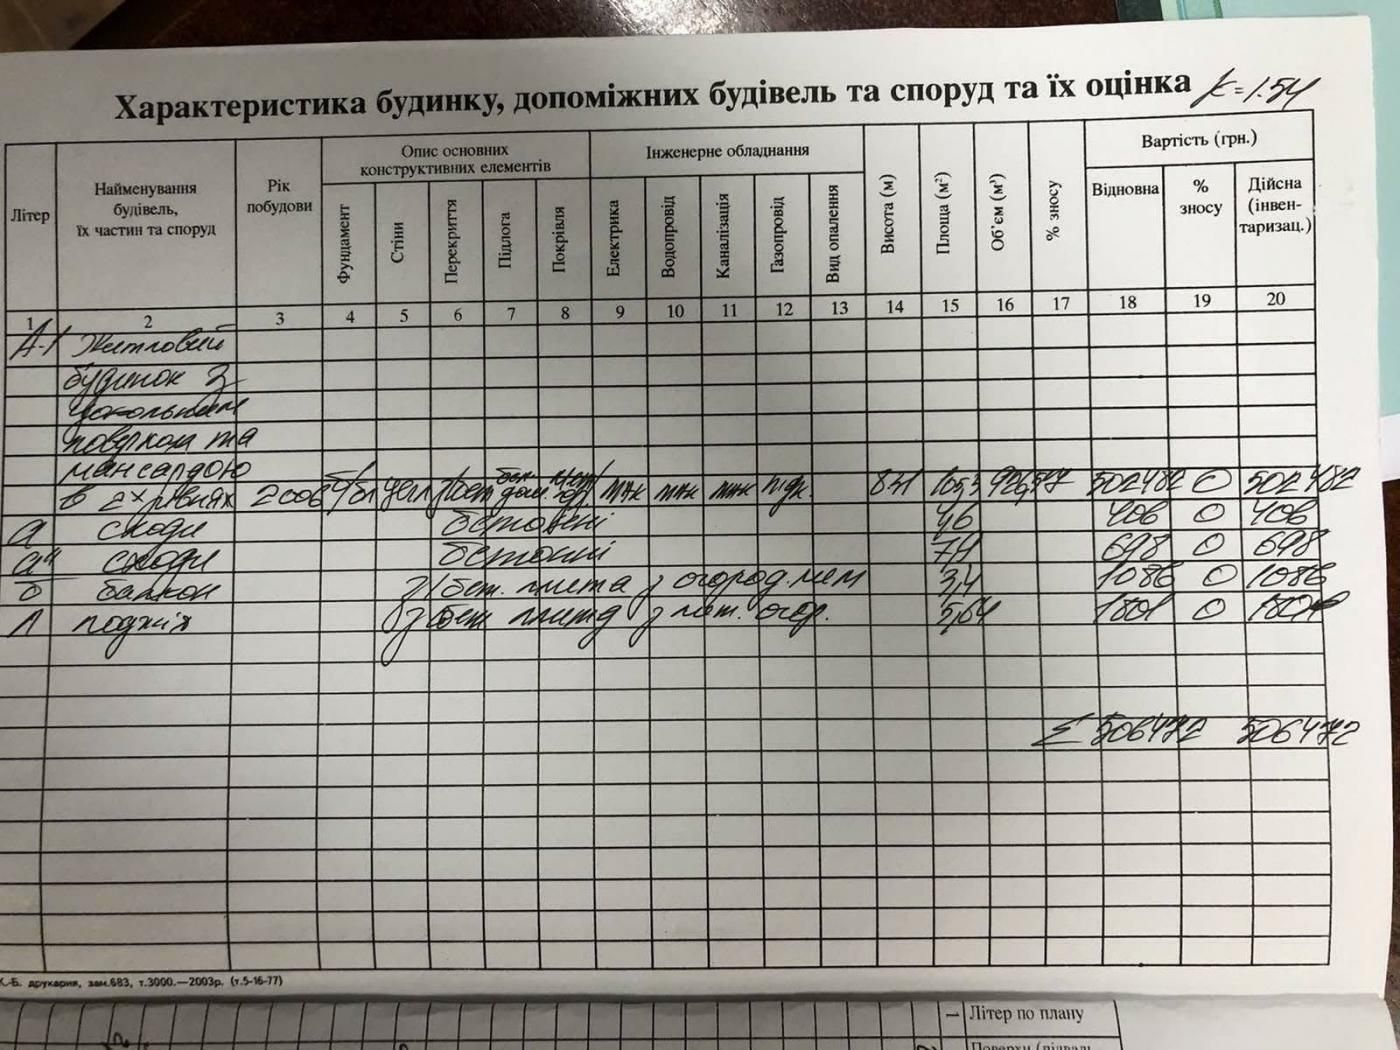 Характеристика будинку, допоміжних будівель та споруд та їх оцінка k=1.54
Літер
Найменування будівель, їх частин та споруд
Рік побудови
Опис основних конструктивних елементів
Інженерне обладнання
Вартість (грн.)
Фундамент Стіни Перекриття Підлога Покрівля Електрика Водопровід Каналізація Газопровід Вид опалення Висота (м) Площа (м²) Об'єм (м³) % зносу
Відновна % зносу Дійсна (інвентаризац.)
1 2 3 4 5 6 7 8 9 10 11 12 13 14 15 16 17 18 19 20
А-1 Житловий
будинок з
цокольним
поверхом та
мансардою
в 2х рівнях 2006 502482 0 502482
а сходи бетонні 4,6 406 0 406
сходи бетонні 698 0 698
б балкон з/бет. плита з огород. мет 3,4 1086 0 1086
Л лоджія з/бет плита з мет. огор. 5,64 1801 0
Σ 506472 506472
К.-Б. друкарня, зам.683, т.3000.—2003р. (т.5-16-77)
1 Літер по плану